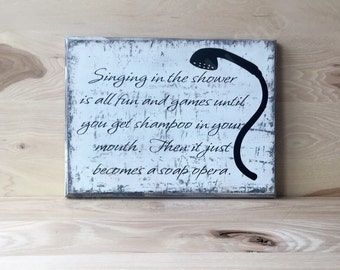 Singing in the shower
is all fun and games until
you get shampoo in your
mouth. Then it just
becomes a soap opera.